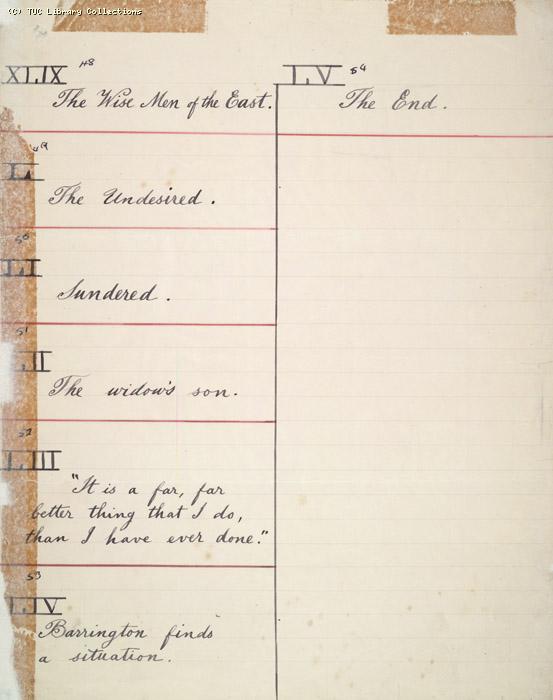 (C) TUC Library Collections
XLIX 48
The Wise Men of the East.
L 49
The Undesired.
LI 50
Sundered.
LII 51
The widow's son.
LIII 52
"It is a far, far
better thing that I do,
than I have ever done."
LIV 53
Barrington finds
a situation.
LV 54
The End.